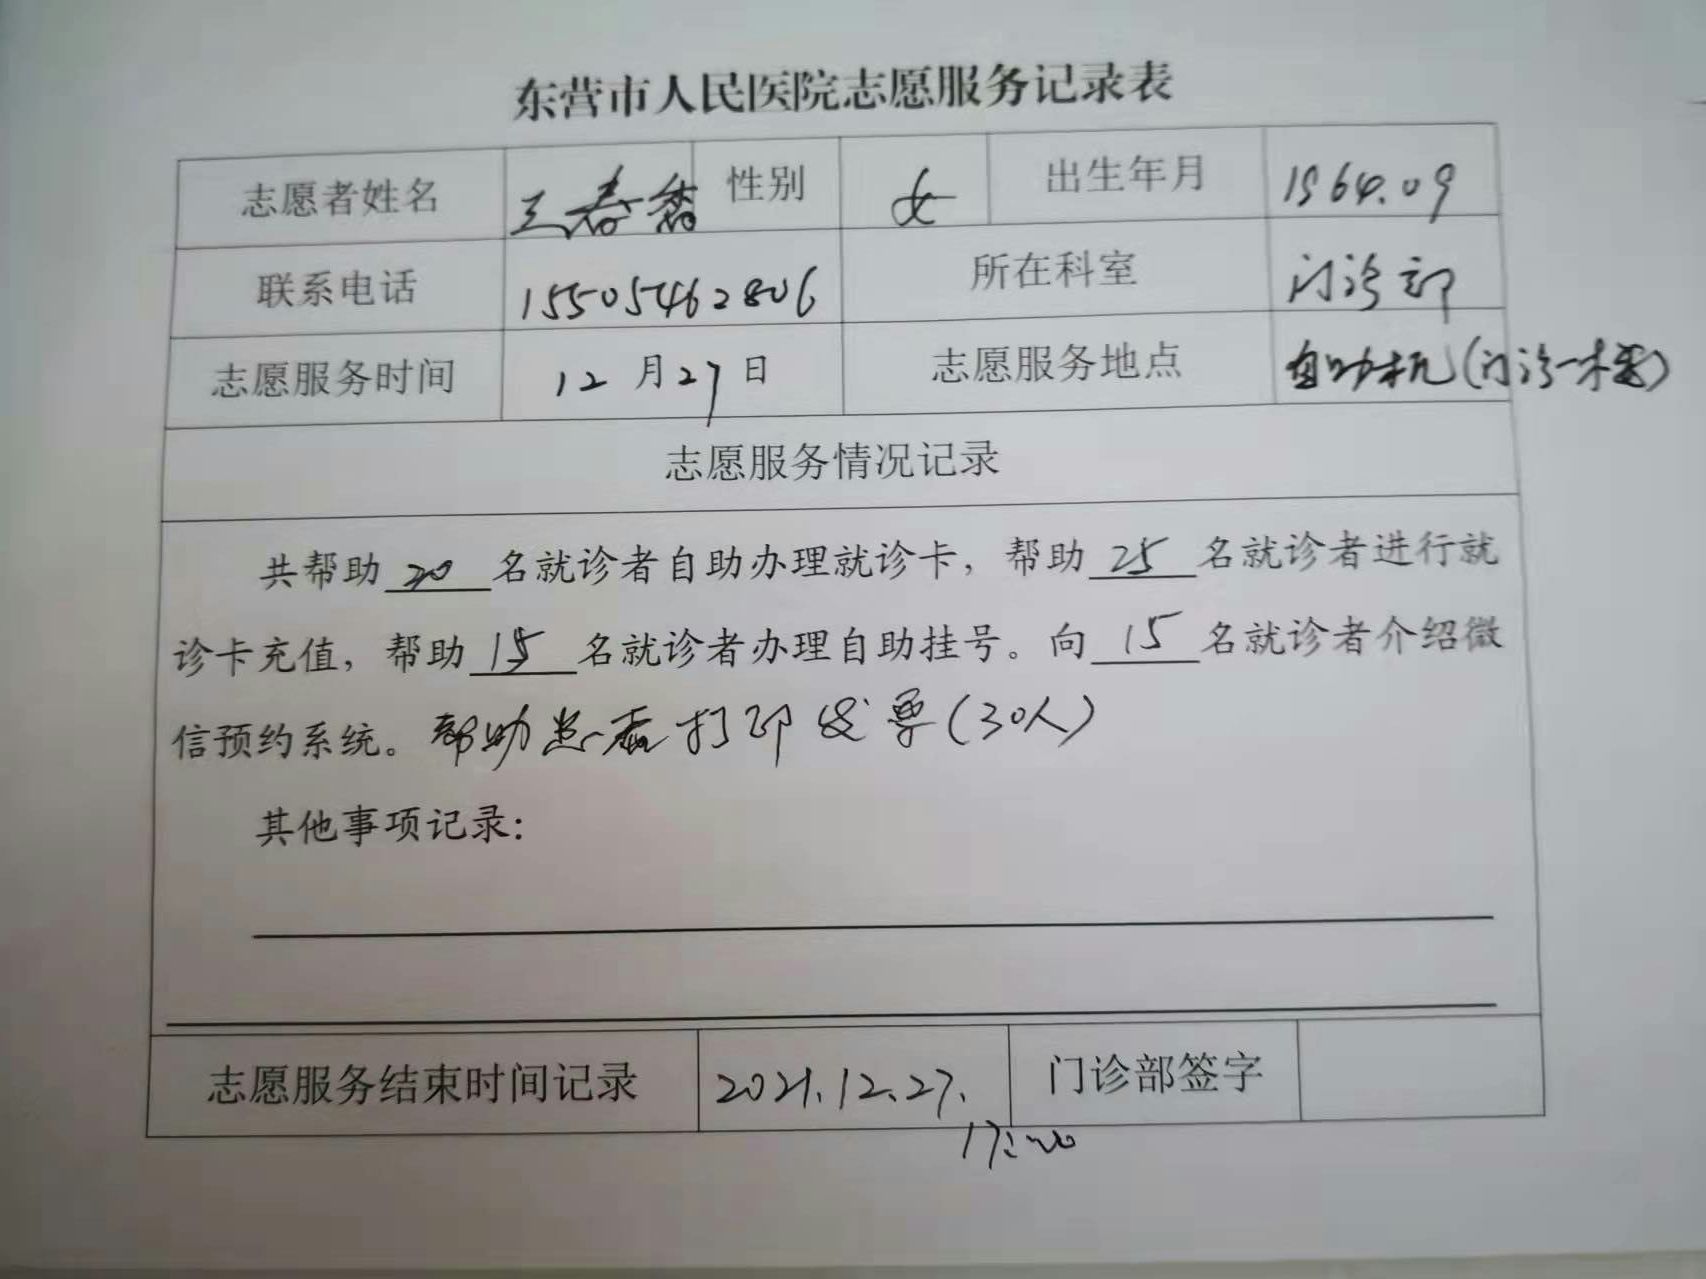 东营市人民医院志愿服务记录表
志愿者姓名 王春香 性别 女 出生年月 1964.09
联系电话 15505462806 所在科室 门诊部
志愿服务时间 12月27日 志愿服务地点 自助机(门诊一楼)
志愿服务情况记录
共帮助 20 名就诊者自助办理就诊卡，帮助 25 名就诊者进行就
诊卡充值，帮助 15 名就诊者办理自助挂号。向 15 名就诊者介绍微
信预约系统。帮助患者打印发票(30人)
其他事项记录：
志愿服务结束时间记录 2021.12.27. 门诊部签字
17:20